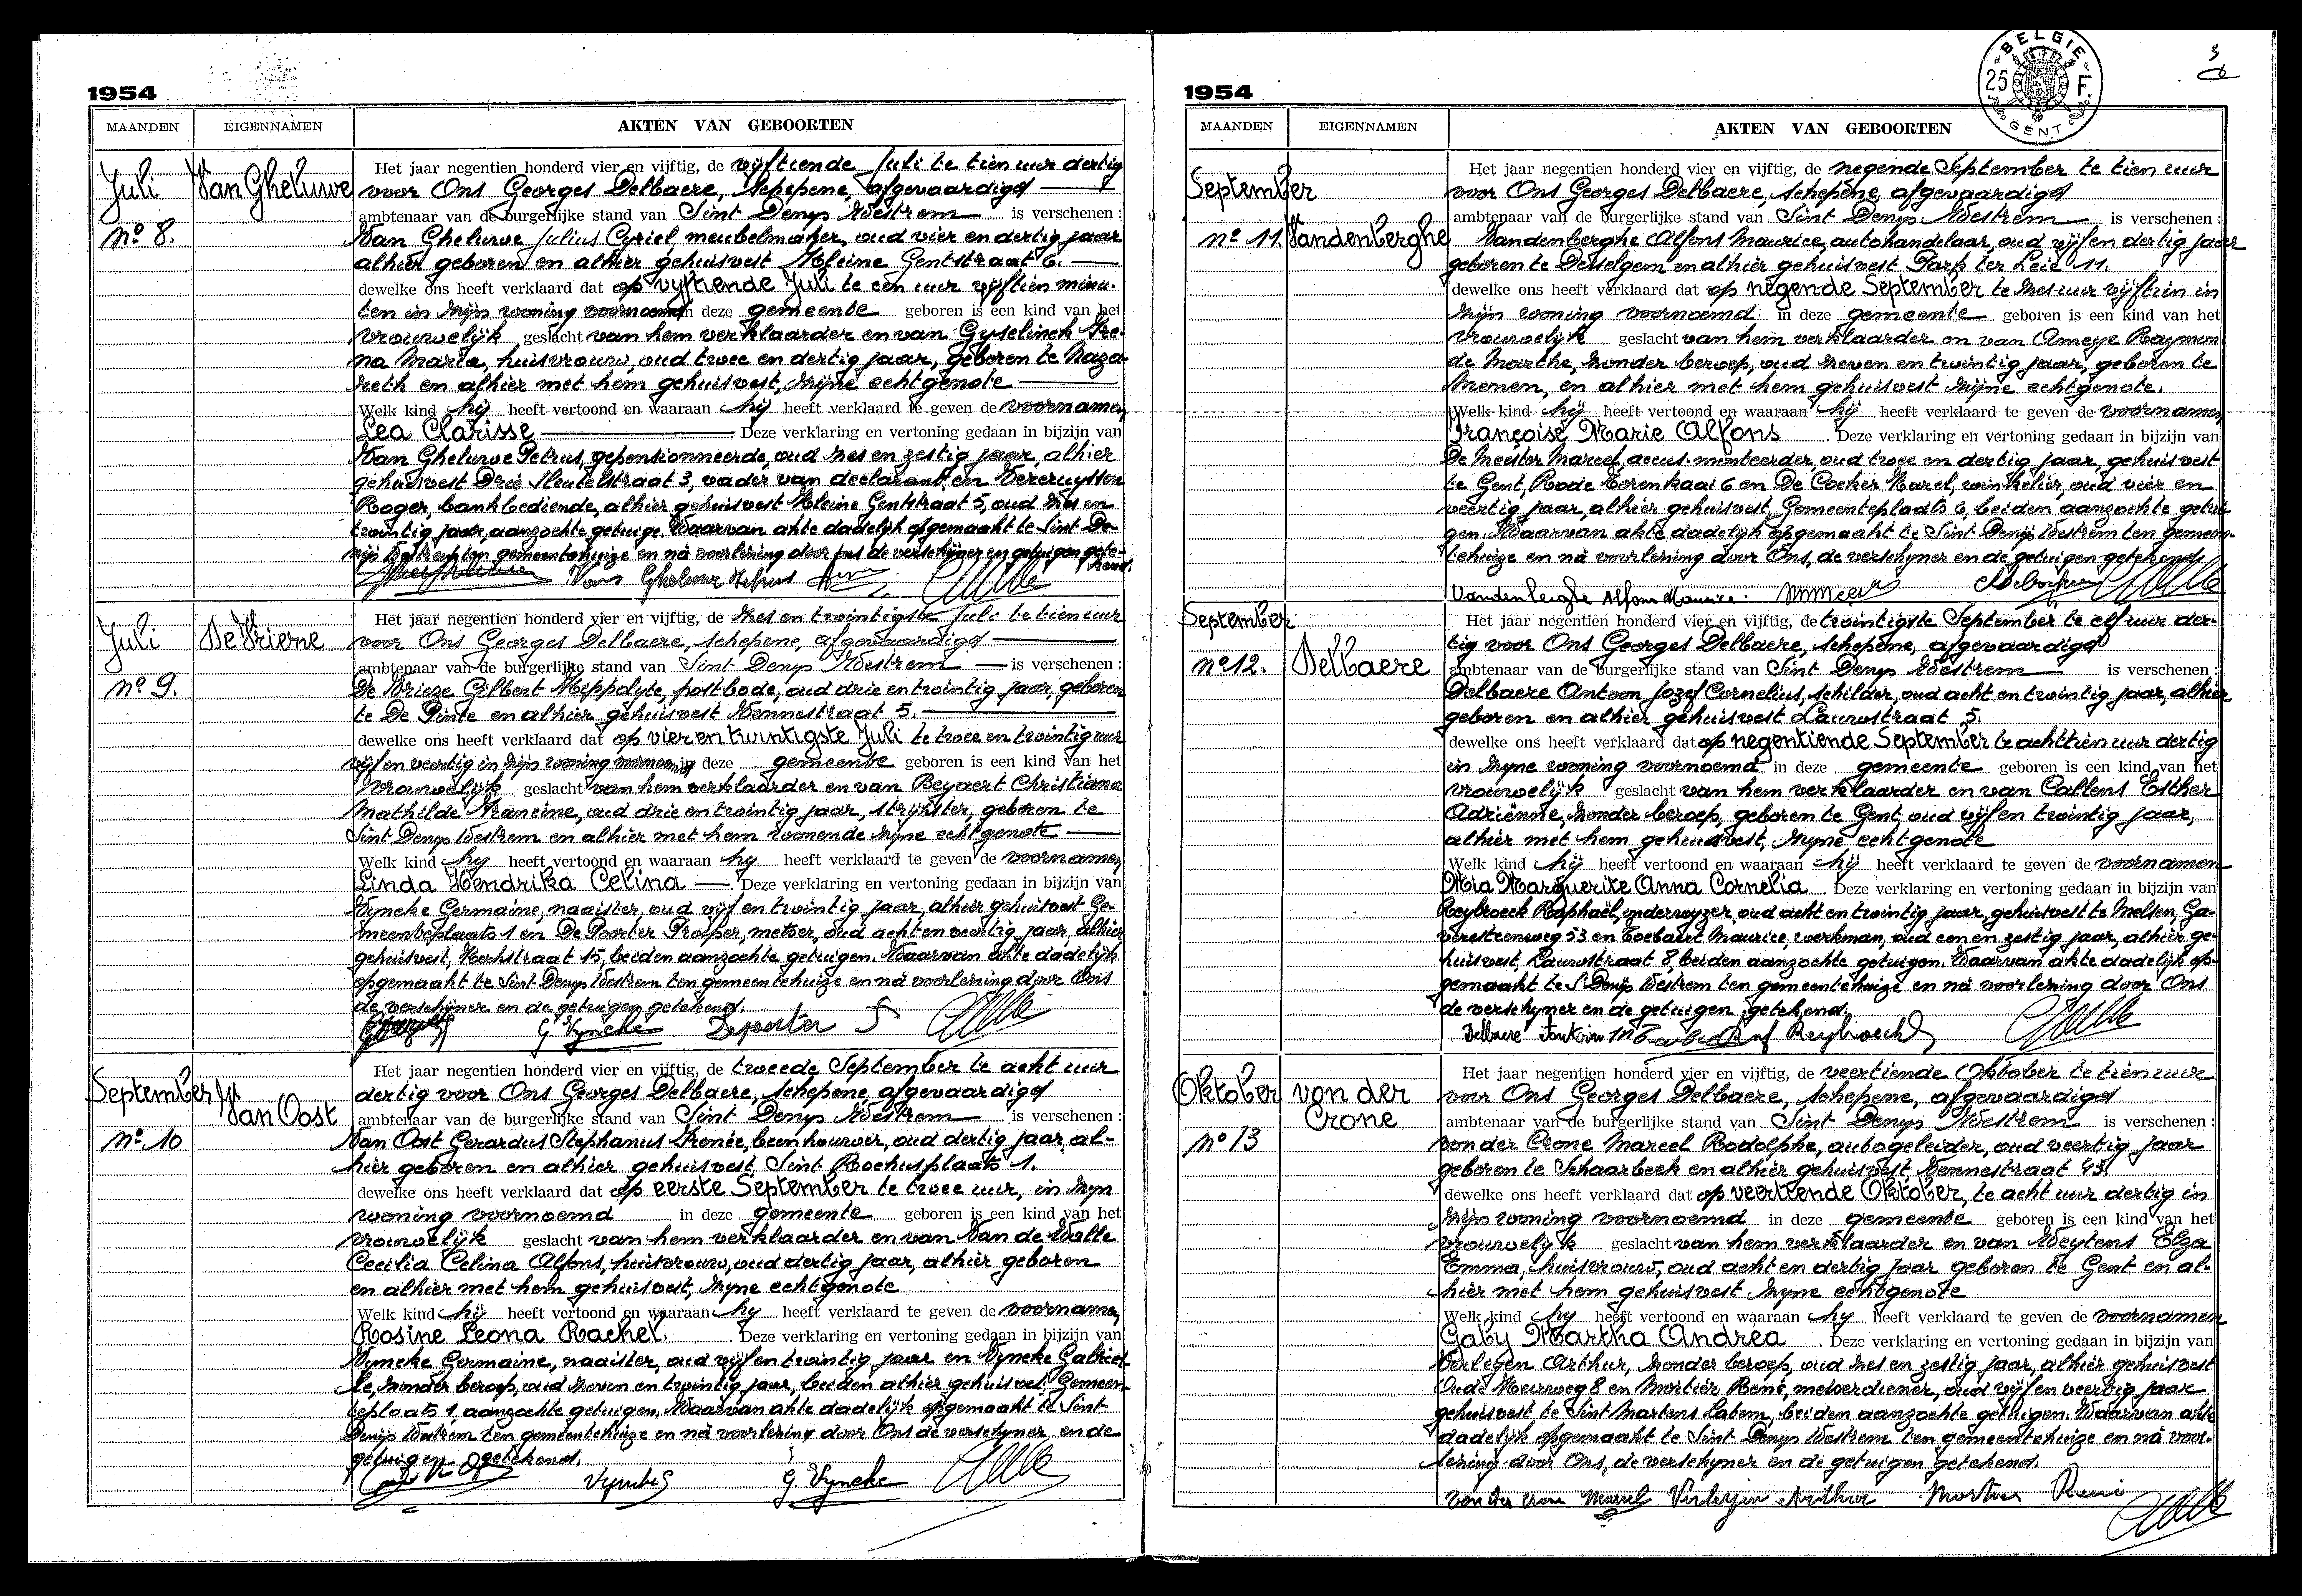 1954
MAANDEN EIGENNAMEN AKTEN VAN GEBOORTEN
Juli
Van Gheluwe
No 8.
Het jaar negentien honderd vier en vijftig, de vijftiende Juli te tien uur dertig
voor Ons Georges Delbaere, schepene, afgevaardigd
ambtenaar van de burgerlijke stand van Sint Denys Westrem is verschenen :
Van Gheluwe Julius Cyriel, meubelmaker, oud vier en dertig jaar
alhier geboren en alhier gehuisvest Kleine Gentstraat 6.
dewelke ons heeft verklaard dat op vijftiende Juli te een uur vijftien minu-
ten in zijn woning voornoemd in deze gemeente geboren is een kind van het
vrouwelijk geslacht van hem verklaarder en van Gyselinck Ire-
na Maria, huisvrouw, oud twee en dertig jaar, geboren te Naza-
reth en alhier met hem gehuisvest, zijne echtgenote
Welk kind hij heeft vertoond en waaraan hij heeft verklaard te geven de voornamen
Lea Clarisse Deze verklaring en vertoning gedaan in bijzijn van
Van Gheluwe Petrus, gepensionneerde, oud zes en zestig jaar, alhier
gehuisvest Drie Sleutelstraat 3, vader van declarant en Vercruyssen
Roger, bankbediende, alhier gehuisvest Kleine Gentstraat 5, oud zes en
twintig jaar, aanzochte getuige. Waarvan akte dadelijk opgemaakt te Sint De-
nijs Westrem ten gemeentehuize en nà voorlezing door ons de verschijner en getuigen gete-
kend.
Van Gheluwe Petrus
Juli
De Vrieze
No 9.
Het jaar negentien honderd vier en vijftig, de zes en twintigste Juli te tien uur
voor Ons Georges Delbaere, schepene, afgevaardigd
ambtenaar van de burgerlijke stand van Sint Denys Westrem is verschenen :
De Vrieze Gilbert Hippolyte, postbode, oud drie en twintig jaar, geboren
te De Pinte en alhier gehuisvest Kennestraat 5.
dewelke ons heeft verklaard dat op vier en twintigste Juli te twee en twintig uur
vijf en veertig in zijn woning voornoemd in deze gemeente geboren is een kind van het
vrouwelijk geslacht van hem verklaarder en van Beyaert Christiana
Mathilde Francine, oud drie en twintig jaar, strijkster, geboren te
Sint Denys Westrem en alhier met hem wonende zijne echtgenote
Welk kind hy heeft vertoond en waaraan hy heeft verklaard te geven de voornamen
Linda Hendrika Celina Deze verklaring en vertoning gedaan in bijzijn van
Vyncke Germaine, naaister, oud vijf en twintig jaar, alhier gehuisvest Ge-
meenteplaats 1 en De Poorter Prosper, metser, oud acht en veertig jaar, alhier
gehuisvest, Kerkstraat 15, beiden aanzochte getuigen. Waarvan akte dadelijk
opgemaakt te Sint Denys Westrem ten gemeentehuize en nà voorlezing door Ons
de verschijner en de getuigen getekend.
G. Vyncke Depoorter P
September
Van Oost
No 10
Het jaar negentien honderd vier en vijftig, de tweede September te acht uur
dertig voor Ons Georges Delbaere, schepene, afgevaardigd
ambtenaar van de burgerlijke stand van Sint Denys Westrem is verschenen :
Van Oost Gerardus Stephanus Irenée, beenhouwer, oud dertig jaar, al-
hier geboren en alhier gehuisvest, Sint Rochusplaats 1.
dewelke ons heeft verklaard dat op eerste September te twee uur, in zijn
woning voornoemd in deze gemeente geboren is een kind van het
vrouwelijk geslacht van hem verklaarder en van Van de Walle
Cecilia Celina Alfons, huisvrouw, oud dertig jaar, alhier geboren
en alhier met hem gehuisvest, zijne echtgenote
Welk kind hij heeft vertoond en waaraan hy heeft verklaard te geven de voornamen
Rosine Leona Rachel. Deze verklaring en vertoning gedaan in bijzijn van
Vyncke Germaine, naaister, oud vijf en twintig jaar en Vyncke Gabriel-
le, zonder beroep, oud zeven en twintig jaar, beiden alhier gehuisvest Gemeen-
teplaats 1, aanzochte getuigen. Waarvan akte dadelijk opgemaakt te Sint
Denijs Westrem ten gemeentehuize en nà voorlezing door Ons de verschijner en de
getuigen getekend.
G. Vyncke
1954
BELGIE 25 F. GENT
3
MAANDEN EIGENNAMEN AKTEN VAN GEBOORTEN
September
No 11. Vandenberghe
Het jaar negentien honderd vier en vijftig, de negende September te tien uur
voor Ons Georges Delbaere, schepene, afgevaardigd
ambtenaar van de burgerlijke stand van Sint Denys Westrem is verschenen :
Vandenberghe Alfons Maurice, autohandelaar, oud vijf en dertig jaar
geboren te Desselgem en alhier gehuisvest Park ter Leie 11.
dewelke ons heeft verklaard dat op negende September te zes uur vijftien in
zijn woning voornoemd in deze gemeente geboren is een kind van het
vrouwelijk geslacht van hem verklaarder en van Ameye Raymon-
de Marthe, zonder beroep, oud zeven en twintig jaar, geboren te
Menen, en alhier met hem gehuisvest zijne echtgenote.
Welk kind hij heeft vertoond en waaraan hij heeft verklaard te geven de voornamen
Françoise Marie Alfons. Deze verklaring en vertoning gedaan in bijzijn van
De Meester Marcel, accus. monteerder, oud twee en dertig jaar, gehuisvest
te Gent, Rode Torenkaai 6 en De Cocker Karel, winkelier, oud vier en
veertig jaar, alhier gehuisvest, Gemeenteplaats 6, beiden aanzochte getui-
gen. Waarvan akte dadelijk opgemaakt te Sint Denijs Westrem ten gemeen-
tehuize en nà voorlezing door Ons, de verschijner en de getuigen getekend.
Vandenberghe Alfons Maurice.
September
No 12. Delbaere
Het jaar negentien honderd vier en vijftig, de twintigste September te elf uur der-
tig voor Ons Georges Delbaere, schepene, afgevaardigd
ambtenaar van de burgerlijke stand van Sint Denys Westrem is verschenen :
Delbaere Antoon Jozef Cornelius, schilder, oud acht en twintig jaar, alhier
geboren en alhier gehuisvest Lauwstraat 5.
dewelke ons heeft verklaard dat op negentiende September te achttien uur dertig
in zijne woning voornoemd in deze gemeente geboren is een kind van het
vrouwelijk geslacht van hem verklaarder en van Callens Esther
Adriënne, zonder beroep, geboren te Gent, oud vijf en twintig jaar,
alhier met hem gehuisvest, zijne echtgenote
Welk kind hij heeft vertoond en waaraan hij heeft verklaard te geven de voornamen
Mia Marguerite Anna Cornelia. Deze verklaring en vertoning gedaan in bijzijn van
Reybroeck Raphaël, onderwyzer, oud acht en twintig jaar, gehuisvest te Melsen, Ga-
verestreenweg 53 en Coebaert Maurice, werkman, oud een en zestig jaar, alhier ge-
huisvest, Lauwstraat 8, beiden aanzochte getuigen. Waarvan akte dadelijk op-
gemaakt te St Denijs Westrem ten gemeentehuize en nà voorlezing door Ons
de verschijner en de getuigen getekend.
Delbaere Antoon Raf Reybroeck
Oktober von der
Crone
No 13
Het jaar negentien honderd vier en vijftig, de veertiende Oktober te tien uur
voor Ons Georges Delbaere, schepene, afgevaardigd
ambtenaar van de burgerlijke stand van Sint Denys Westrem is verschenen :
von der Crone Marcel Rodolphe, autogeleider, oud veertig jaar
geboren te Schaarbeek en alhier gehuisvest, Kennestraat 45.
dewelke ons heeft verklaard dat op veertiende Oktober, te acht uur dertig in
zijn woning voornoemd in deze gemeente geboren is een kind van het
vrouwelijk geslacht van hem verklaarder en van Weytens Elza
Emma, huisvrouw, oud acht en dertig jaar geboren te Gent en al-
hier met hem gehuisvest zijne echtgenote
Welk kind hy heeft vertoond en waaraan hy heeft verklaard te geven de voornamen
Gaby Martha Andrea Deze verklaring en vertoning gedaan in bijzijn van
Verlegen Arthur, zonder beroep, oud zes en zestig jaar, alhier gehuisvest
Oude Heirweg 8 en Mortier René, metserdiener, oud vijf en veertig jaar
gehuisvest te Sint Martens Latem, beiden aanzochte getuigen. Waarvan akte
dadelijk opgemaakt te Sint Denys Westrem ten gemeentehuize en nà voor-
lezing door Ons, de verschijner en de getuigen getekend.
von der Crone Marcel Verlegen Arthur Mortier René